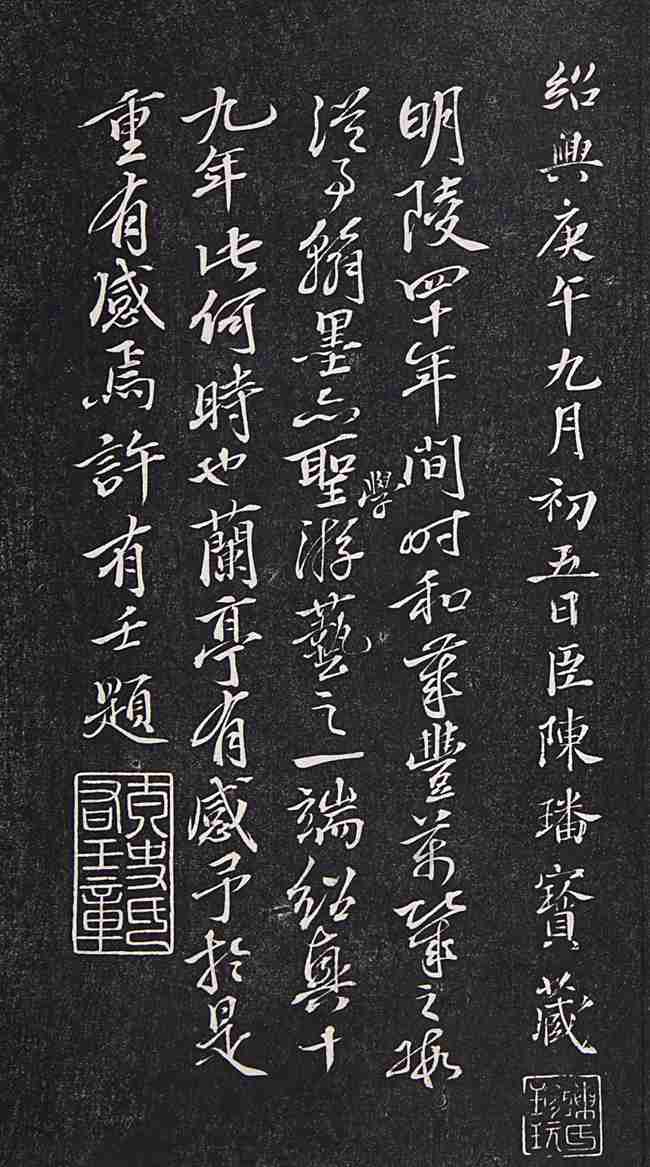 紹興庚午九月初五日臣陳璠寶藏
陳氏珍玩
明陵四十年間時和歲豐萬幾之暇
從事翰墨亦聖學游藝之一端紹興十
九年此何時也蘭亭有感予於是
重有感焉許有壬題
有壬章